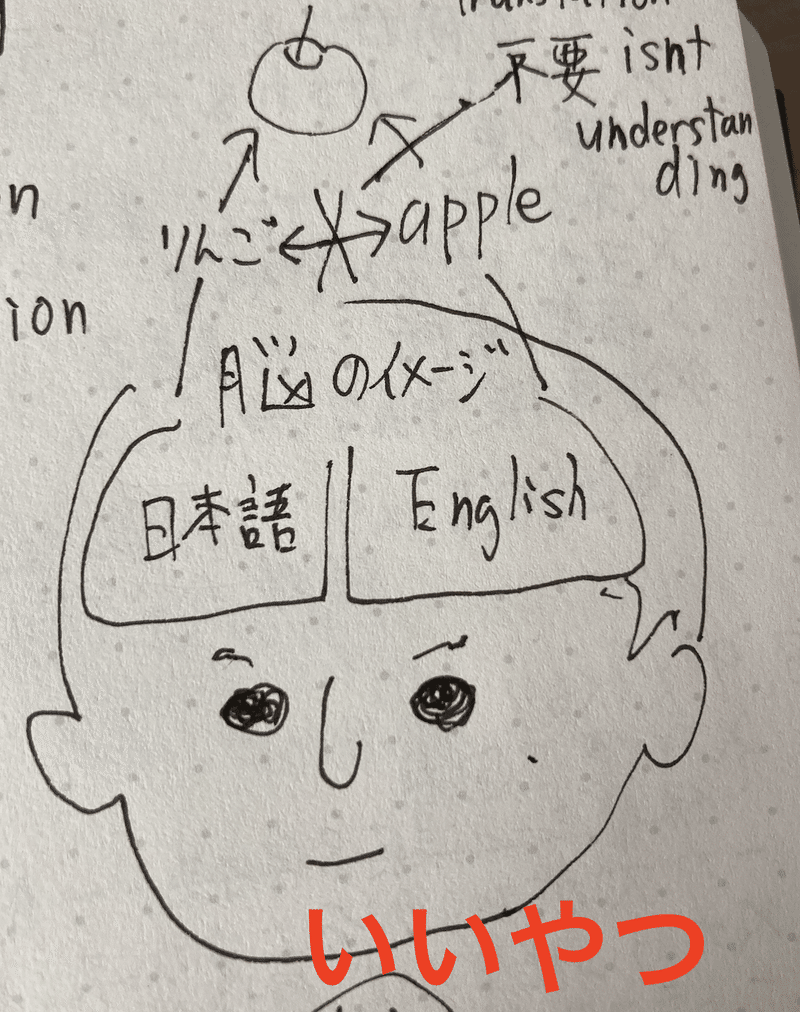 translation
不要 isnt
understan
ding
n
りんご apple
ion
脳のイメージ
日本語 English
いいやつ